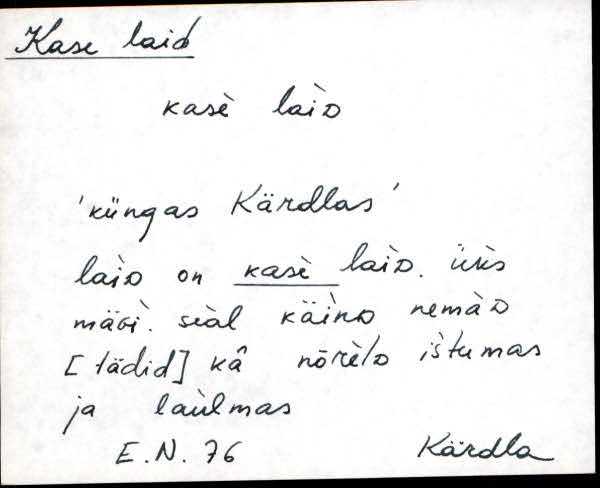 Kase laid
kasè laìᴅ
'küngas Kärdlas'
laìᴅ on kasè laìᴅ. üsès
mäɢì. seàl käìnᴅ nemàᴅ
[tädid] kâ nōrèl̀ᴅ ištumas
ja laùlmas
E.N. 76 Kärdla